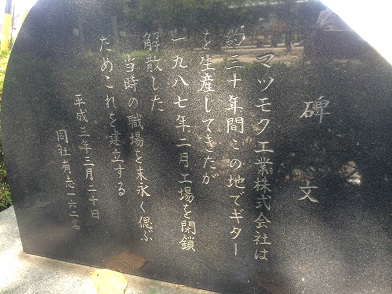 碑文
マツモク工業株式会社は
約三十年間この地でギター
を生産してきたが
一九八七年二月工場を閉鎖
解散した
当時の職場を末永く偲ぶ
ためこれを建立する
平成三年三月二十日
同社有志一六二名